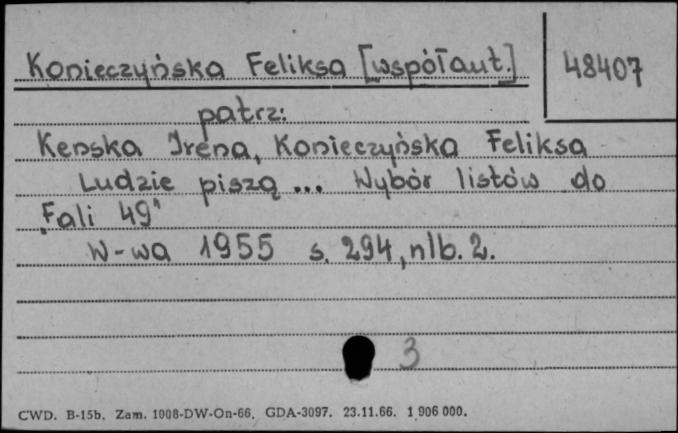 Konieczyńska Feliksa [współaut.]
48407
patrz:
Kenska Irena, Konieczyńska Feliksa
Ludzie piszą ... Wybór listów do
„Fali 49"
W-wa 1955 s. 294, nlb. 2.
3
CWD. B-15b. Zam. 1008-DW-On-66. GDA-3097. 23.11.66. 1 906 000.